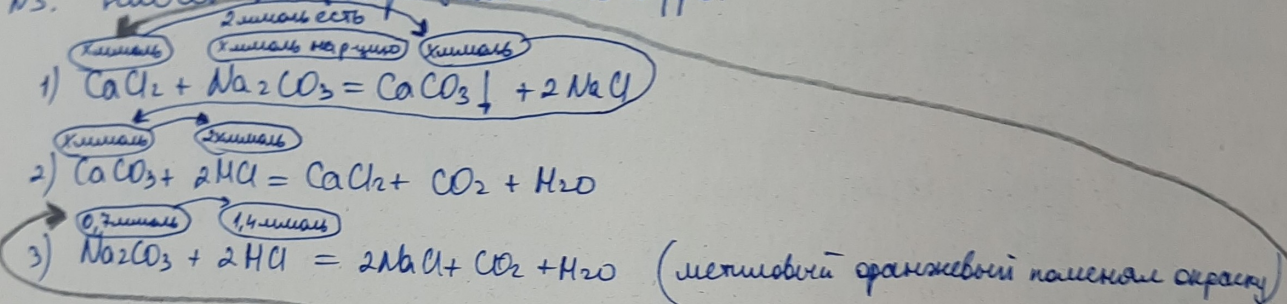 2 ммоль есть
x ммоль x ммоль на р-цию x ммоль
1) CaCl₂ + Na₂CO₃ = CaCO₃↓ + 2NaCl
x ммоль 2x ммоль
2) CaCO₃ + 2HCl = CaCl₂ + CO₂ + H₂O
0,7 ммоль 1,4 ммоль
3) Na₂CO₃ + 2HCl = 2NaCl + CO₂ + H₂O (метиловый оранжевый поменял окраску)